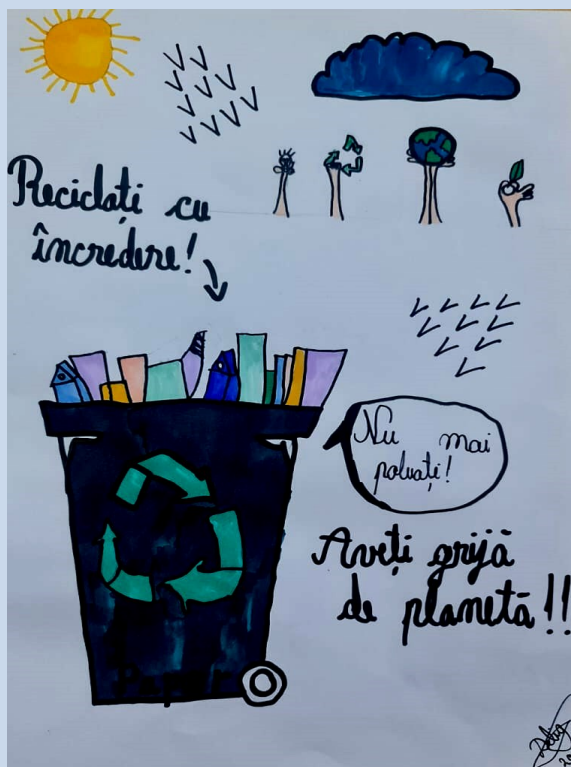 Reciclați cu
încredere!
Nu mai
poluați!
Aveți grijă
de planetă!!